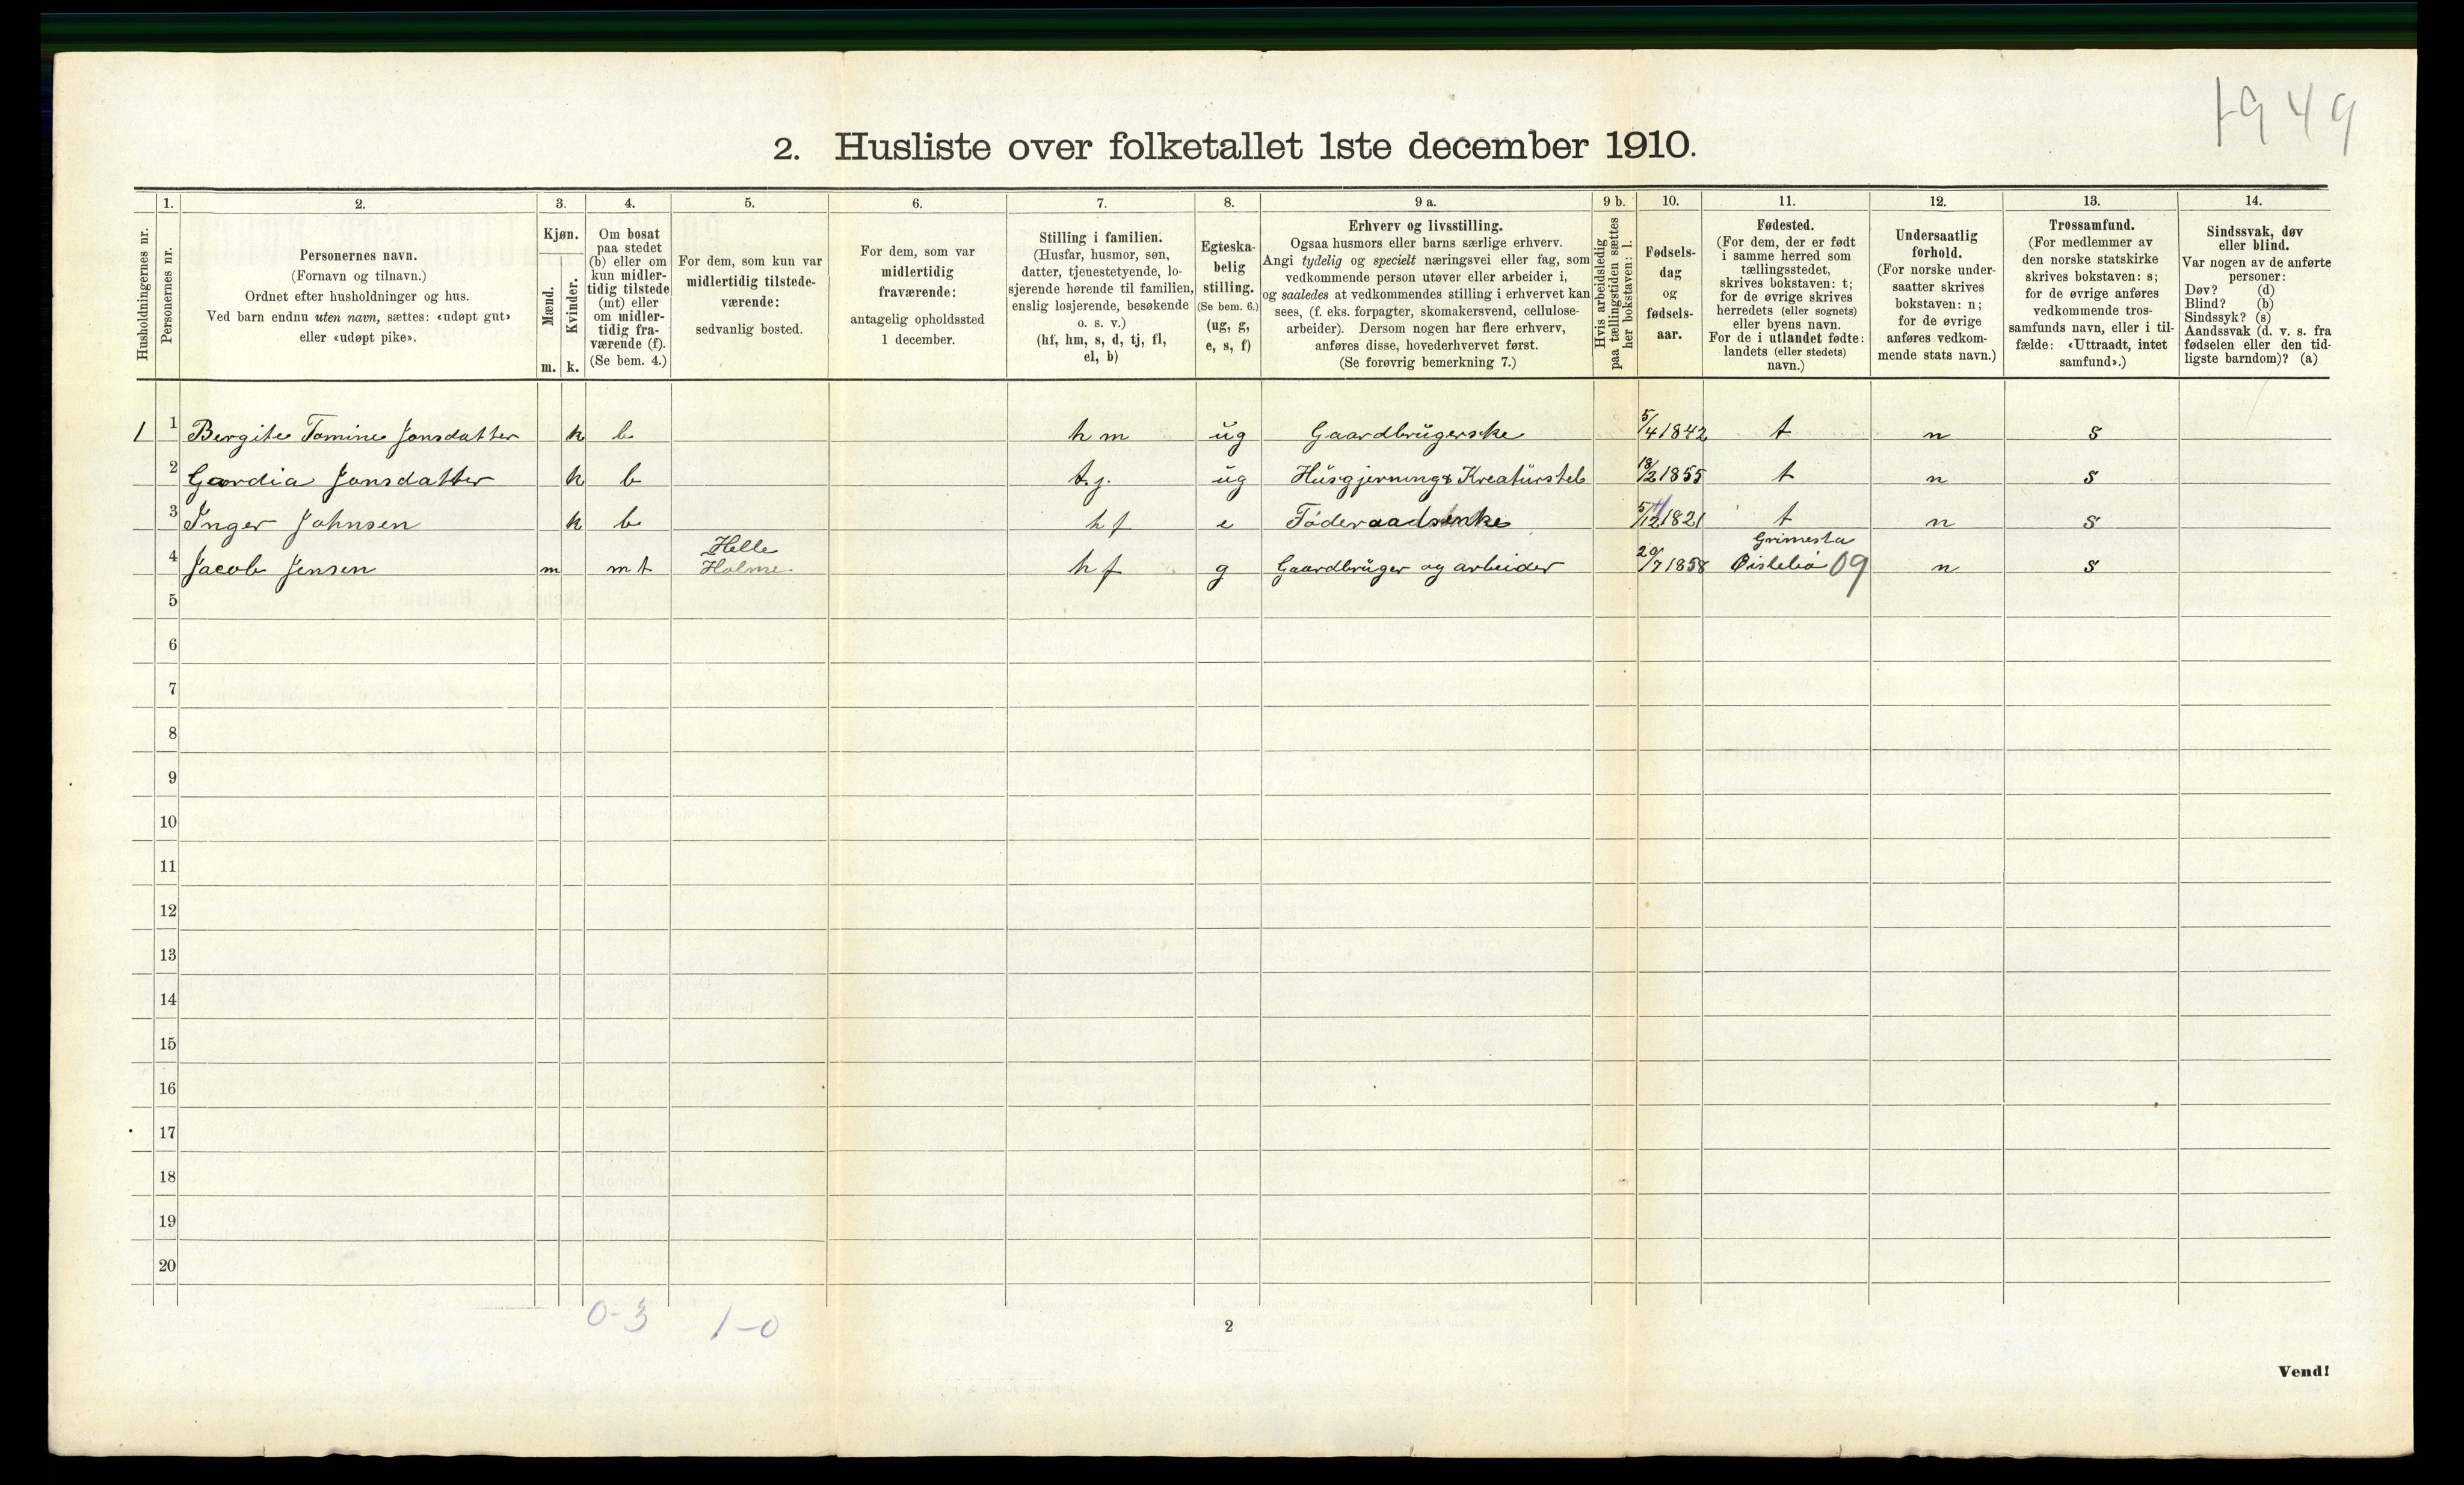 1949
2. Husliste over folketallet 1ste december 1910.
Husholdningernes nr.
1.
Personernes nr.
2.
Personernes navn.
(Fornavn og tilnavn.)
Ordnet efter husholdninger og hus.
Ved barn endnu uten navn, sættes: «udøpt gut»
eller «udøpt pike».
3.
Kjøn.
Mænd.
Kvinder.
m. k.
4.
Om bosat
paa stedet
(b) eller om
kun midler-
tidig tilstede
(mt) eller
om midler-
tidig fra-
værende (f).
(Se bem. 4.)
5.
For dem, som kun var
midlertidig tilstede-
værende:
sedvanlig bosted.
6.
For dem, som var
midlertidig
fraværende:
antagelig opholdssted
1 december.
7.
Stilling i familien.
(Husfar, husmor, søn,
datter, tjenestetyende, lo-
sjerende hørende til familien,
enslig losjerende, besøkende
o. s. v.)
(hf, hm, s, d, tj, fl,
el, b)
8.
Egteska-
belig
stilling.
(Se bem. 6.)
(ug, g,
e, s, f)
9 a.
Erhverv og livsstilling.
Ogsaa husmors eller barns særlige erhverv.
Angi tydelig og specielt næringsvei eller fag, som
vedkommende person utøver eller arbeider i,
og saaledes at vedkommendes stilling i erhvervet kan
sees, (f. eks. forpagter, skomakersvend, cellulose-
arbeider). Dersom nogen har flere erhverv,
anføres disse, hovederhvervet først.
(Se forøvrig bemerkning 7.)
9 b.
Hvis arbeidsledig
paa tællingstiden sættes
her bokstaven: l.
10.
Fødsels-
dag
og
fødsels-
aar.
11.
Fødested.
(For dem, der er født
i samme herred som
tællingsstedet,
skrives bokstaven: t;
for de øvrige skrives
herredets (eller sognets)
eller byens navn.
For de i utlandet fødte:
landets (eller stedets)
navn.)
12.
Undersaatlig
forhold.
(For norske under-
saatter skrives
bokstaven: n;
for de øvrige
anføres vedkom-
mende stats navn.)
13.
Trossamfund.
(For medlemmer av
den norske statskirke
skrives bokstaven: s;
for de øvrige anføres
vedkommende tros-
samfunds navn, eller i til-
fælde: «Uttraadt, intet
samfund».)
14.
Sindssvak, døv
eller blind.
Var nogen av de anførte
personer:
Døv? (d)
Blind? (b)
Sindssyk? (s)
Aandssvak (d. v. s. fra
fødselen eller den tid-
ligste barndom)? (a)
1 1 Bergite Tomine Jonsdatter k b h m ug Gaardbrügerske 5/4 1842 t n s
2 Gardia Jonsdatter k b t.j. ug Hüsgjerning & Kreatürstel 18/2 1855 t n s
3 Inger Johnsen k b h f e Föderaadsenke 5/12 1821 t n s
4 Jacob Jensen m m t Helle Holme. h f g Gaardbrüger og arbeider 20/7 1858 Grimesta Øislebö 09 n s
5
6
7
8
9
10
11
12
13
14
15
16
17
18
19
20
0-3 1-0
2
Vend!